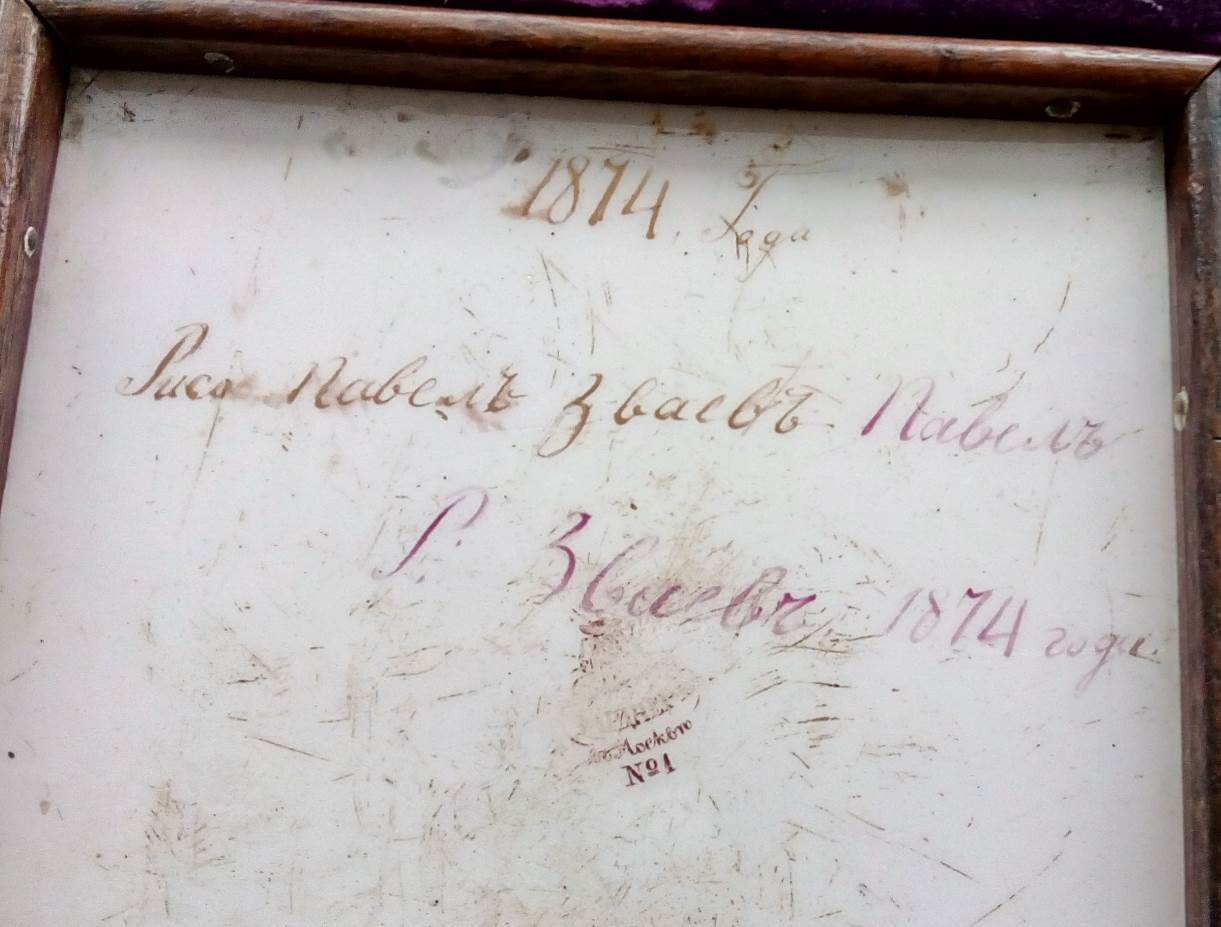 1874. Года
Рисо Павелъ Зваевъ Павелъ
Р. Зваевъ 1874 года
въ Москвѣ
№1